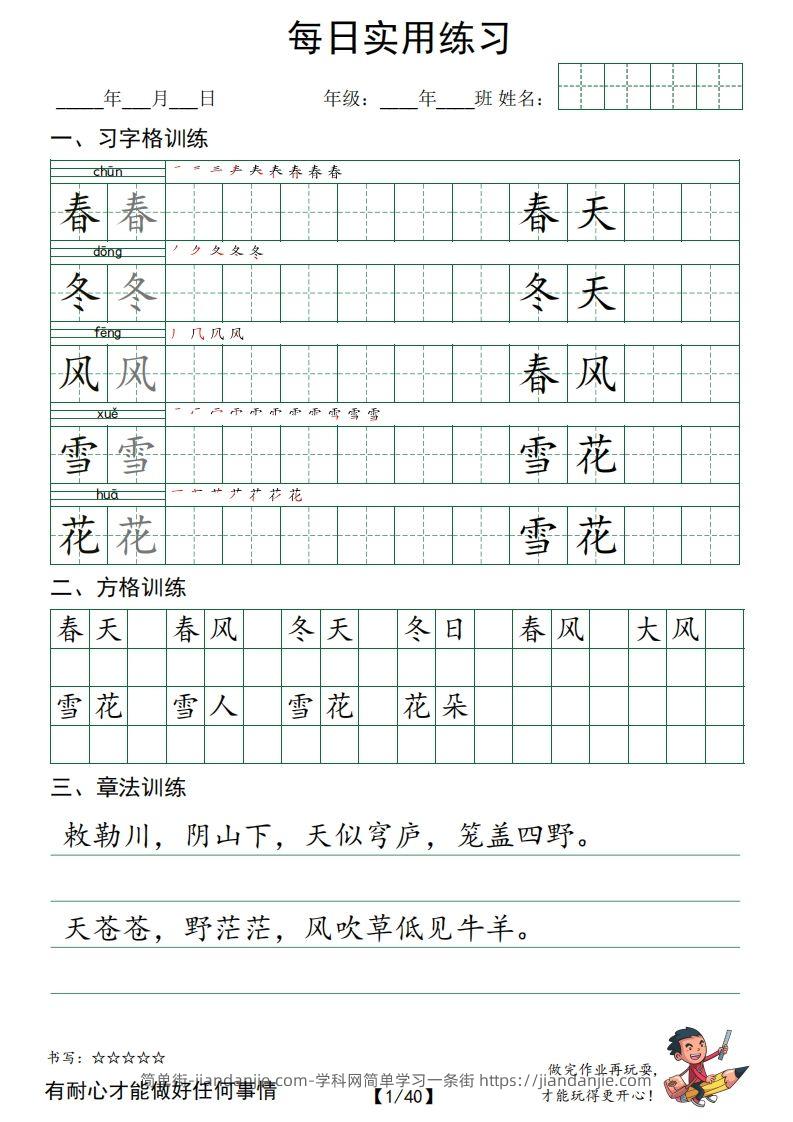 每日实用练习
_____年___月___日 年级：____年____班 姓名：
一、习字格训练
chūn
春 春 春 天
dōng
冬 冬 冬 天
fēng
风 风 春 风
xuě
雪 雪 雪 花
huā
花 花 雪 花
二、方格训练
春天 春风 冬天 冬日 春风 大风
雪花 雪人 雪花 花朵
三、章法训练
敕勒川，阴山下，天似穹庐，笼盖四野。
天苍苍，野茫茫，风吹草低见牛羊。
书写：☆☆☆☆☆
做完作业再玩耍，
简单街-jiandanjie.com-学科网简单学习一条街 https://jiandanjie.com
有耐心才能做好任何事情
【1/40】
才能玩得更开心！